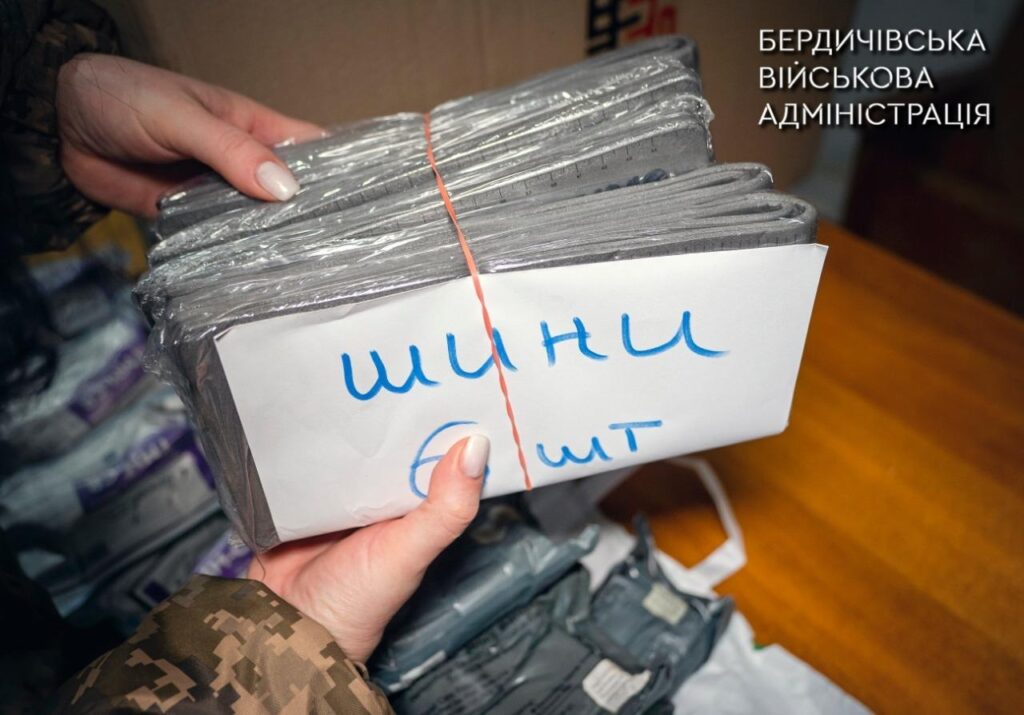 БЕРДИЧІВСЬКА
ВІЙСЬКОВА
АДМІНІСТРАЦІЯ
шини
6 шт